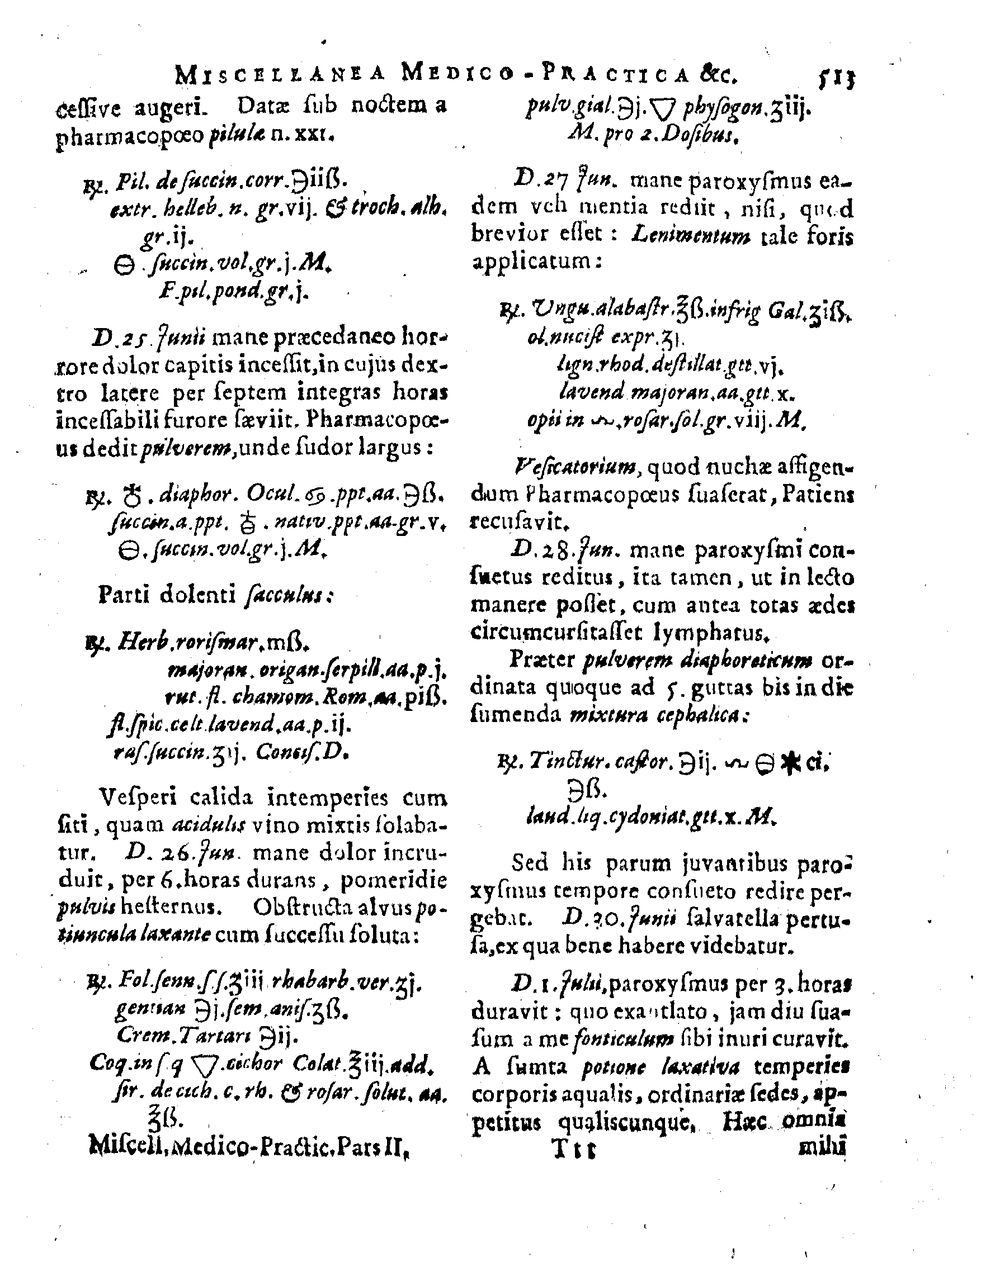 MISCELLANEA MEDICO-PRACTICA &c. 513
ceſſive augeri. Datæ ſub noctem a
pharmacopœo pilulæ n. xxı.
℞. Pil. de ſuccin. corr. ℈iiß.
extr. helleb. n. gr. vij. & troch. alh.
gr. ij.
🜔. ſuccin. vol. gr. j. M.
F. pil. pond. gr. j.
D. 25. Junii mane præcedaneo hor-
rore dolor capitis inceſſit, in cujus dex-
tro latere per ſeptem integras horas
inceſſabili furore ſæviit. Pharmacopœ-
us dedit pulverem, unde ſudor largus:
℞. ♁. diaphor. Ocul. ♋. ppt. aa. ℈ß.
ſuccin. a. ppt. . nativ. ppt. aa. gr. v.
🜔. ſuccin. vol. gr. j. M.
Parti dolenti ſacculus:
℞. Herb. roriſmar. mß.
majoran. origan. ſerpill. aa. p. j.
rut. fl. chamom. Rom. aa. piß.
fl. ſpic. celt. lavend. aa. p. ij.
raſ. ſuccin. ʒij. Conciſ. D.
Veſperi calida intemperies cum
ſiti, quam acidulis vino mixtis ſolaba-
tur. D. 26. Jun. mane dolor incru-
duit, per 6. horas durans, pomeridie
pulvis heſternus. Obſtructa alvus po-
tiuncula laxante cum ſucceſſu ſoluta:
℞. Fol. ſenn. ſ. ſ. ʒiii rhabarb. ver. ʒj.
gentian ℈j. ſem. aniſ. ʒß.
Crem. Tartari ℈ij.
Coq. in ſ q ▽. cichor Colat. ℥iij. add.
ſir. de cich. c. rh. & roſar. ſolut. aa.
℥ß.
Miſcell, Medico-Practic. Pars II,
pulv. gial. ℈j. ▽ phyſogon. ʒiij.
M. pro 2. Doſibus.
D. 27 Jun. mane paroxyſmus ea-
dem veh mentia rediit, niſi, quod
brevior eſſet: Lenimentum tale foris
applicatum:
℞. Ungu. alabaſtr. ℥ß. infrig Gal. ʒiß.
ol. nuciſt expr. ʒj.
lign. rhod. deſtillat. gtt. vj.
lavend majoran. aa. gtt. x.
opii in . roſar. ſol. gr. viij. M.
Veſicatorium, quod nuchæ affigen-
dum Pharmacopœus ſuaſerat, Patiens
recuſavit.
D. 28. Jun. mane paroxyſmi con-
ſuetus reditus, ita tamen, ut in lecto
manere poſſet, cum antea totas ædes
circumcurſitaſſet lymphatus.
Præter pulverem diaphoreticum or-
dinata quoque ad 5. guttas bis in die
ſumenda mixtura cephalica:
℞. Tinctur. caſtor. ℈ij. 🜔 ✱ ci.
℈ß.
laud. liq. cydoniat. gtt. x. M.
Sed his parum juvantibus paro-
xyſmus tempore conſueto redire per-
gebat. D. 30. Junii ſalvatella pertu-
ſa, ex qua bene habere videbatur.
D. 1. Julii, paroxyſmus per 3. horas
duravit: quo exantlato, jam diu ſua-
ſum a me fonticulum ſibi inuri curavit.
A ſumta potione laxativa temperies
corporis aqualis, ordinariæ ſedes, ap-
petitus qualiscunque. Hæc omnia
Ttt mihi